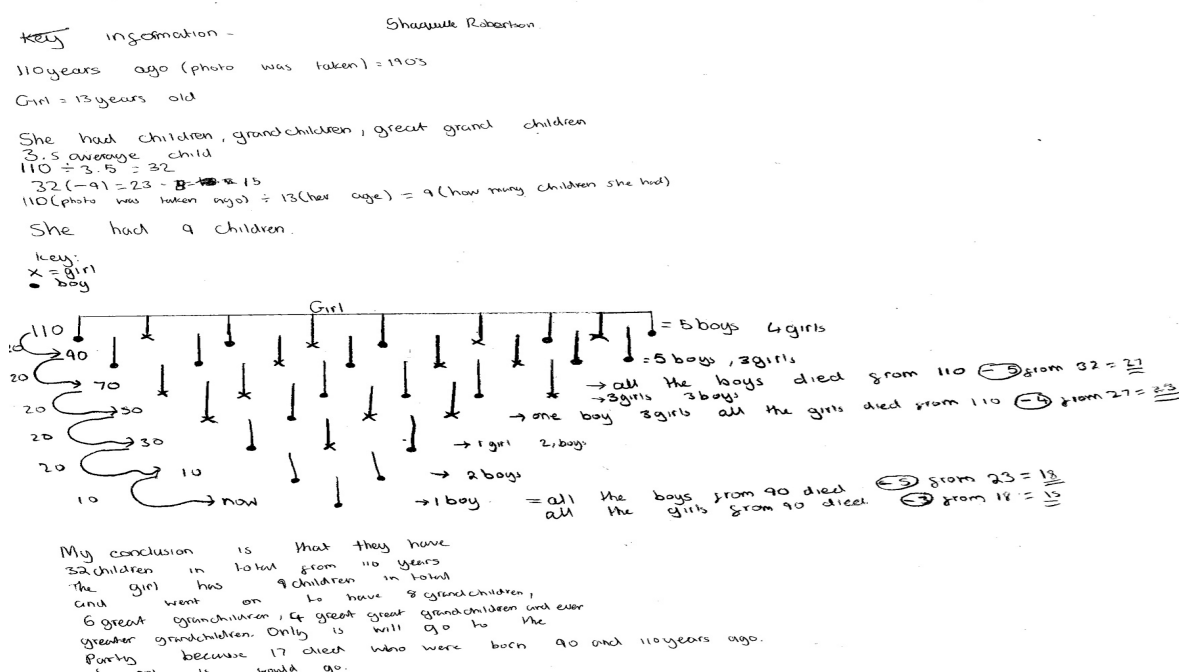 Shaquille Robertson.
Key information -
110 years ago (photo was taken) = 1903
Girl = 13 years old
She had children, grandchildren, great grand children
3.5 average child
110 ÷ 3.5 = 32
32 (-9) = 23 - 15
110 (photo was taken ago) ÷ 13 (her age) = 9 (how many children she had)
She had 9 children.
key:
x = girl
• boy
Girl
110 = 5 boys 4 girls
90 = 5 boys, 3 girls
20 70 → all the boys died from 110 -5 from 32 = 27
→ 3 girls 3 boys
20 50 → one boy 3 girls all the girls died from 110 -4 from 27 = 23
20 30 → 1 girl 2, boys
20 10 → 2 boys
10 now → 1 boy = all the boys from 90 died -5 from 23 = 18
all the girls from 90 died -3 from 18 = 15
My conclusion is that they have
32 children in total from 110 years
The girl has 9 children in total
and went on to have 8 grandchildren,
6 great granchildren, 4 great great grandchildren and even
greater grandchildren. Only 15 will go to the
Party because 17 died who were born 90 and 110 years ago.
would go.